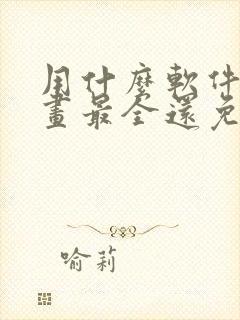 用什麼軟件
畫最全還免
喻莉